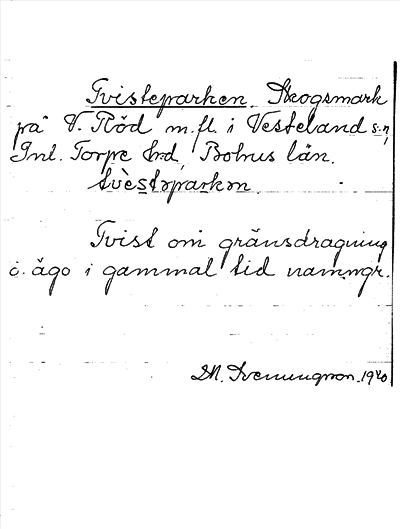 Tvisteparken. Skogsmark
på V. Röd m.fl. i Vesteland s:n,
Inl. Torpe hrd, Bohus län.
tvèstəparkən.
Tvist om gränsdragning
o. ägo i gammal tid namngr.
M. Svenungson. 1940